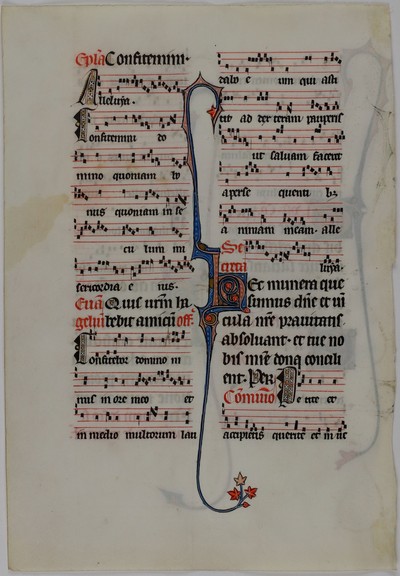 Epła Confitemini·
Alleluya·
Confitemini do
mino quoniam bo
nus quoniam in se
cu lum mi
sericordia e ius·
Euã Quis ur̃m ha
geliũ bebit amicũ off·
Confitebor domino ni
mis in ore meo et
in medio multorum lau
dabo e um qui asti
tit ad dexteram pauperis
ut saluam faceret
a perse quenti b3
a nimam meam· alle
Se
creta luya·
Hec munera que
sumus dñe et ui
cula nr̃e prauitatis
absoluant· et tue no
bis mi͂e dona concili
ent· Per
Cõmunio Pe tite et
accipietis querite et in ue